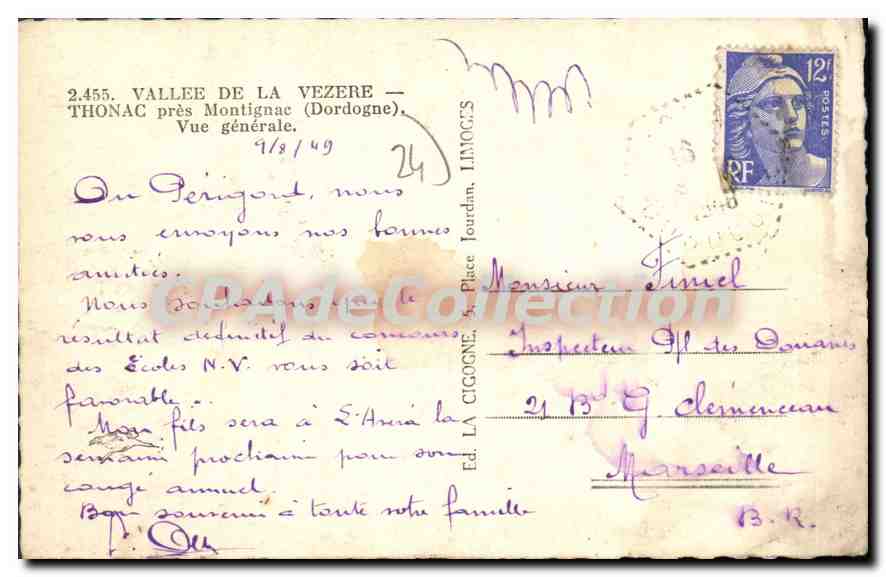 2.455. VALLEE DE LA VEZERE —
THONAC près Montignac (Dordogne).
Vue générale.
9/8/49
24
Du Périgord, nous
vous envoyons nos bonnes
amitiés.
Nous souhaitons que le
résultat définitif du concours
des Écoles N.V. vous soit
favorable.
Mon fils sera à la
semaine prochaine pour son
congé annuel.
Bon souvenir à toute votre famille
Ed. LA CIGOGNE, 5, Place Jourdan, LIMOGES
12f
POSTES
RF
Monsieur
Inspecteur Pl des Douanes
21 Bd G Clemenceau
Marseille
B. R.
CPAdeCollection